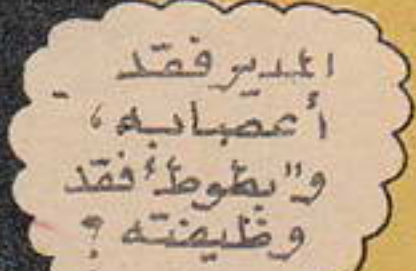 المدير فقد
أعصابه،
و"بطوط" فقد
وظيفته ؟